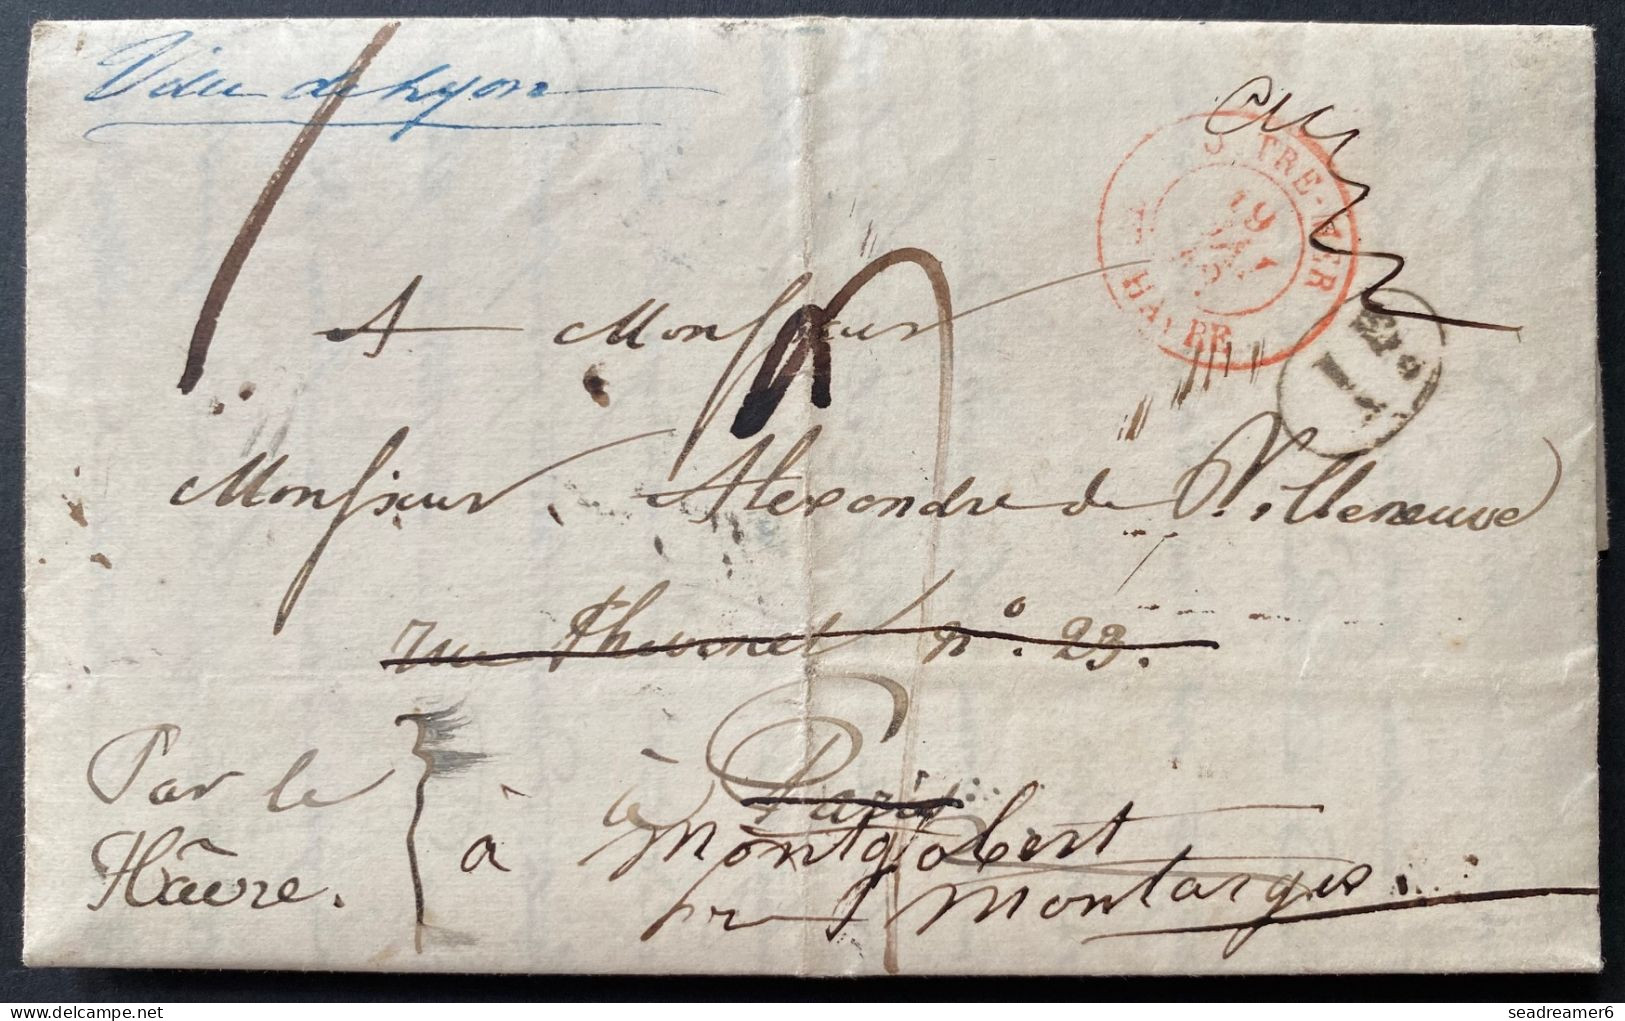 Ville de Lyon
OUTRE-MER
19
HAVRE
A Monsieur
Monsieur Alexandre de Villeneuve
rue n.º 23.
à Paris
Par le
Hâvre.
à Montgobert
pr Montargis
seadreamer6